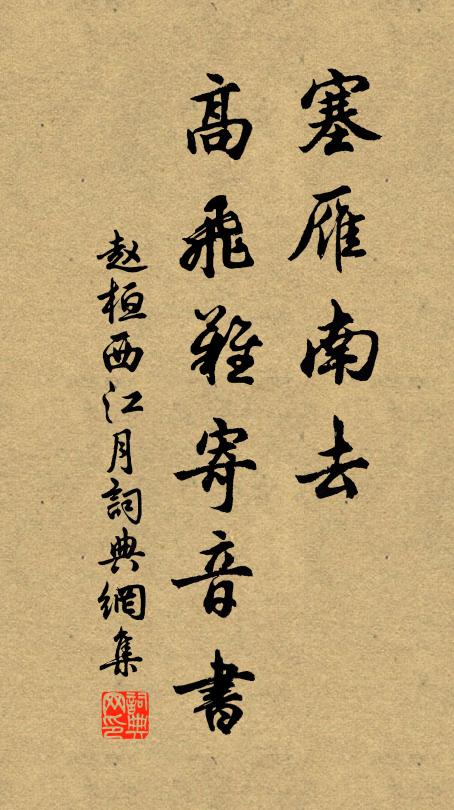 塞雁南去
高飛難寄音書
赵桓西江月詞典網集
詞典网印